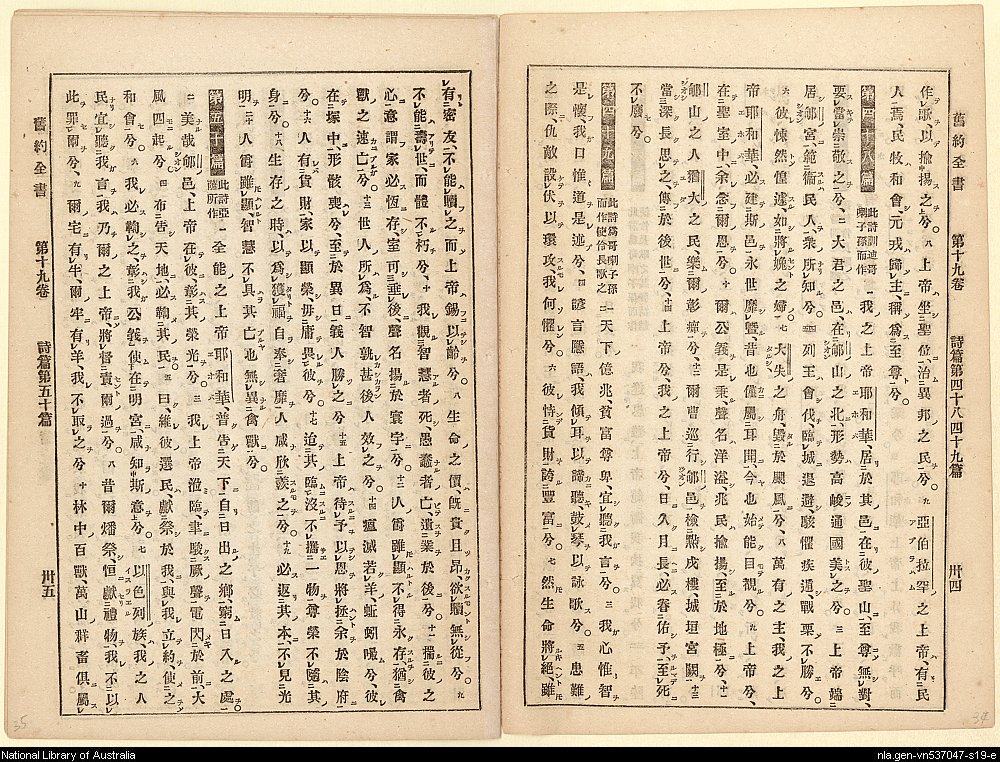 舊約全書　第十九卷　詩篇第四十八四十九篇　卅四
作歌、以揄揚之兮。八 上帝坐聖位、治異邦之民兮。九 亞伯拉罕之上帝、有民
人焉、民牧和會、元戎歸主、稱爲至尊兮。
第四十八篇 此詩訓迪哥喇子孫而作 一 我之上帝耶和華、居於其邑、在彼聖山、至尊無對、
要當崇敬之兮、二 大君之邑、在郇山之北、形勢高峻、通國美之兮、三 上帝端
居郇宮、範衞民人、衆所知兮。四 列王會伐、臨城退避、駭懼疾遁、戰栗不勝兮。
六 彼悚然惶遽、如將娩之婦。七 大失之舟、毀於颶風兮。八 萬有之主、我之上
帝耶和華、必建斯邑、永世靡曁、昔也僅屬耳聞、今也始能目覩兮。九 上帝兮、
在聖室中、余念爾恩兮。十 爾公義是秉、聲名洋溢、兆民揄揚、至於地極兮、十一
郇山之人、猶大之民、樂爾彰癉兮、十二 爾曹巡行郇邑、檢點戍樓城垣宮闕、十三
當深長思之、傳於後世兮、十四 上帝兮、我之上帝兮、日久月長、必眷佑予、至死
不廢兮。
第四十九篇 此詩爲哥喇子孫而作使伶長歌之 一 天下億兆、貧富尊卑、宜聽我言兮。三 我心惟智
是懷、我口惟道是述兮、四 諺言隱語、我傾耳以諦聽、鼓琴以詠歌兮。五 患難
之際、仇敵設伏以環攻、我何懼兮。六 彼恃貨財、誇豐富兮。七 然生命將絕、雖
有密友、不能贖之、而上帝錫以齡兮。八 生命之價、旣貴且昂、欲贖無從兮。九
不能壽世、而體不朽兮、十 我觀智慧者死、愚蠢者亡、遺業於後兮。十一 揣彼之
心意、謂家必恆存、室可垂後、聲名揚於寰宇兮。十二 人爵雖顯、不得永存、猶禽
獸之速亡兮。十三 世人所爲不智、孰甚後人效之兮。十四 殪滅若羊、蚯蚓嘬兮、彼
在塚中、形骸喪兮、至於異日、義人勝之兮、十五 上帝待予以恩、將拯余於陰府
兮。十六 人有貨財、家以顯榮、毋庸畏彼兮。十七 迨其臨沒、不攜一物、尊榮不隨其
身兮。十八 生存之時、以爲獲福、自奉奢靡、人咸欣羨之兮。十九 必返其本、不見光
明、二十 人爵雖顯、智慧不具、其亡也、無異禽獸兮。
第五十篇 此詩亞薩所作 一 全能之上帝耶和華、普告天下、自日出之鄉、窮日入之處。
二 美哉郇邑、上帝在彼、彰其榮光兮。三 我上帝涖臨聿駿厥聲、電閃於前、大
風四起兮。四 布告天地、必鞫其民。五 曰、維彼選民、獻祭於我、與我立約、使之
和會兮。六 我必鞫之、彰我公義、使在明宮、咸知斯意兮。七 以色列族、我之人
民、宜聽我言、我乃爾之上帝、將督責爾過兮。八 昔爾燔祭、恒獻禮物、我不以
此罪爾兮、九 爾宅有牛、爾牢有羊、我不取之兮、十 林中百獸、萬山群畜、俱屬
舊約全書　第十九卷　詩篇第五十篇　卅五
35
34
National Library of Australia
nla.gen-vn537047-s19-e